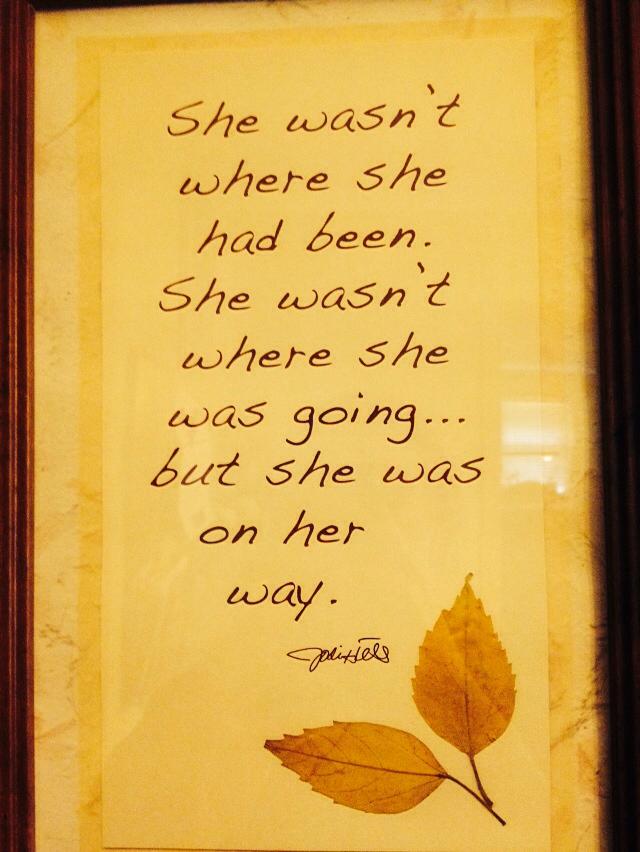 She wasn't
where she
had been.
She wasn't
where she
was going...
but she was
on her
way.